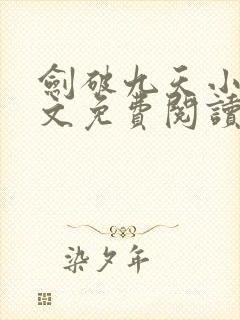 劍破九天小
文免費閱讀
染夕年